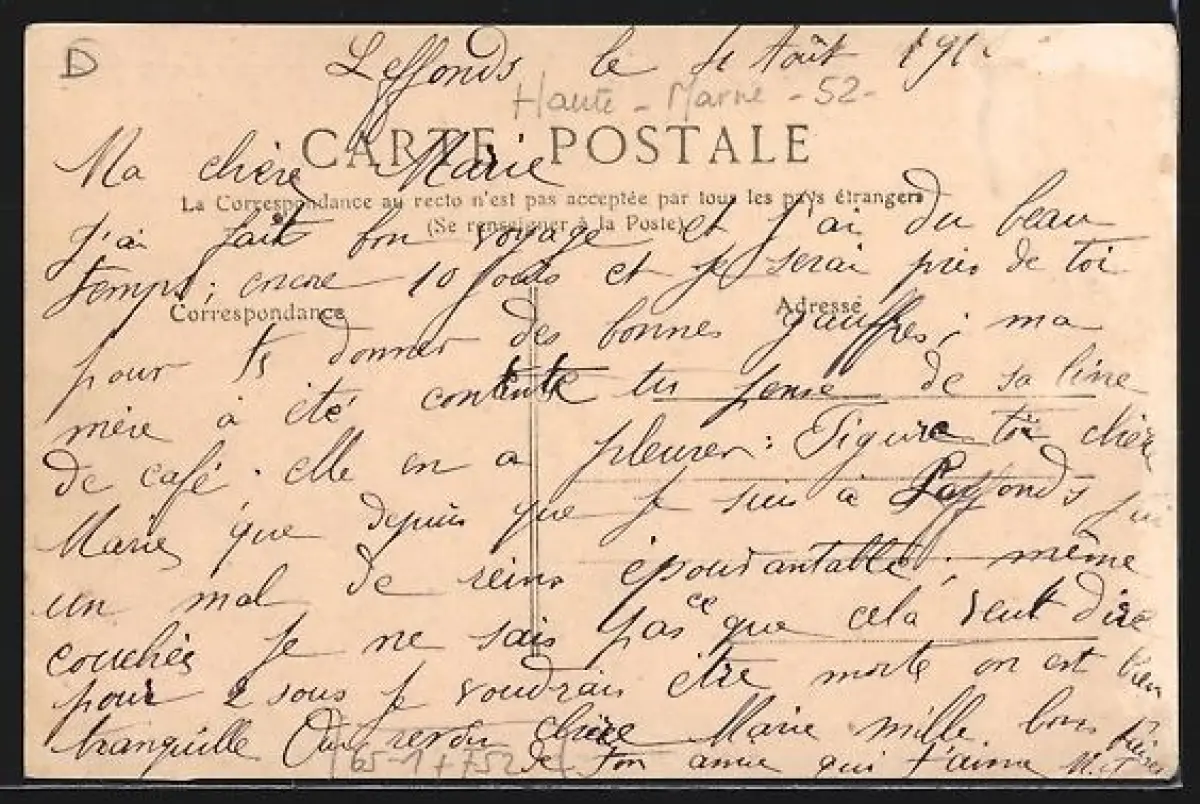 D
Leffonds le 4 Août 191
Haute - Marne - 52 -
CARTE POSTALE
Ma chère Marie
La Correspondance au recto n'est pas acceptée par tous les pays étrangers
(Se renseigner à la Poste)
J'ai fait bon voyage et j'ai du beau
temps; encore 10 jours et je serai près de toi
Correspondance
Adresse
pour te donner des bonnes gauffres; ma
mère à été contente tu pense de sa livre
de café. elle en a pleurer: Figure toi chère
Marie que depuis que je suis à Leffonds j'ai
un mal de reins épouvantable; même
couchée je ne sais pas ce que cela veut dire
pour 2 sous je voudrais être morte on est bien
tranquille Au revoir chère Marie mille bons
de ton amie qui t'aime